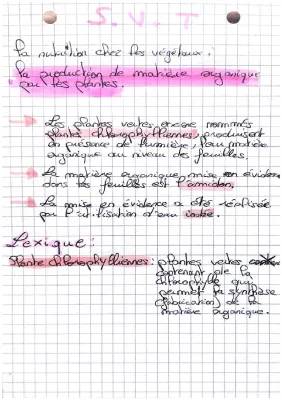 S.V.T
La nutrition chez les végétaux.
La production de matière organique
par les plantes.
Les plantes vertes, encore nommées
plantes chlorophylliennes, produisent
en présence de lumière, leur matière
organique au niveau des feuilles.
La matière organique mise en évidence
dans les feuilles est l'amidon.
La mise en évidence a été réalisée
par l'utilisation d'eau iodée.
Lexique :
Plante chlorophylliennes : plantes vertes
contenant de la
chlorophylle qui
permet la synthèse
(fabrication) de la
matière organique.